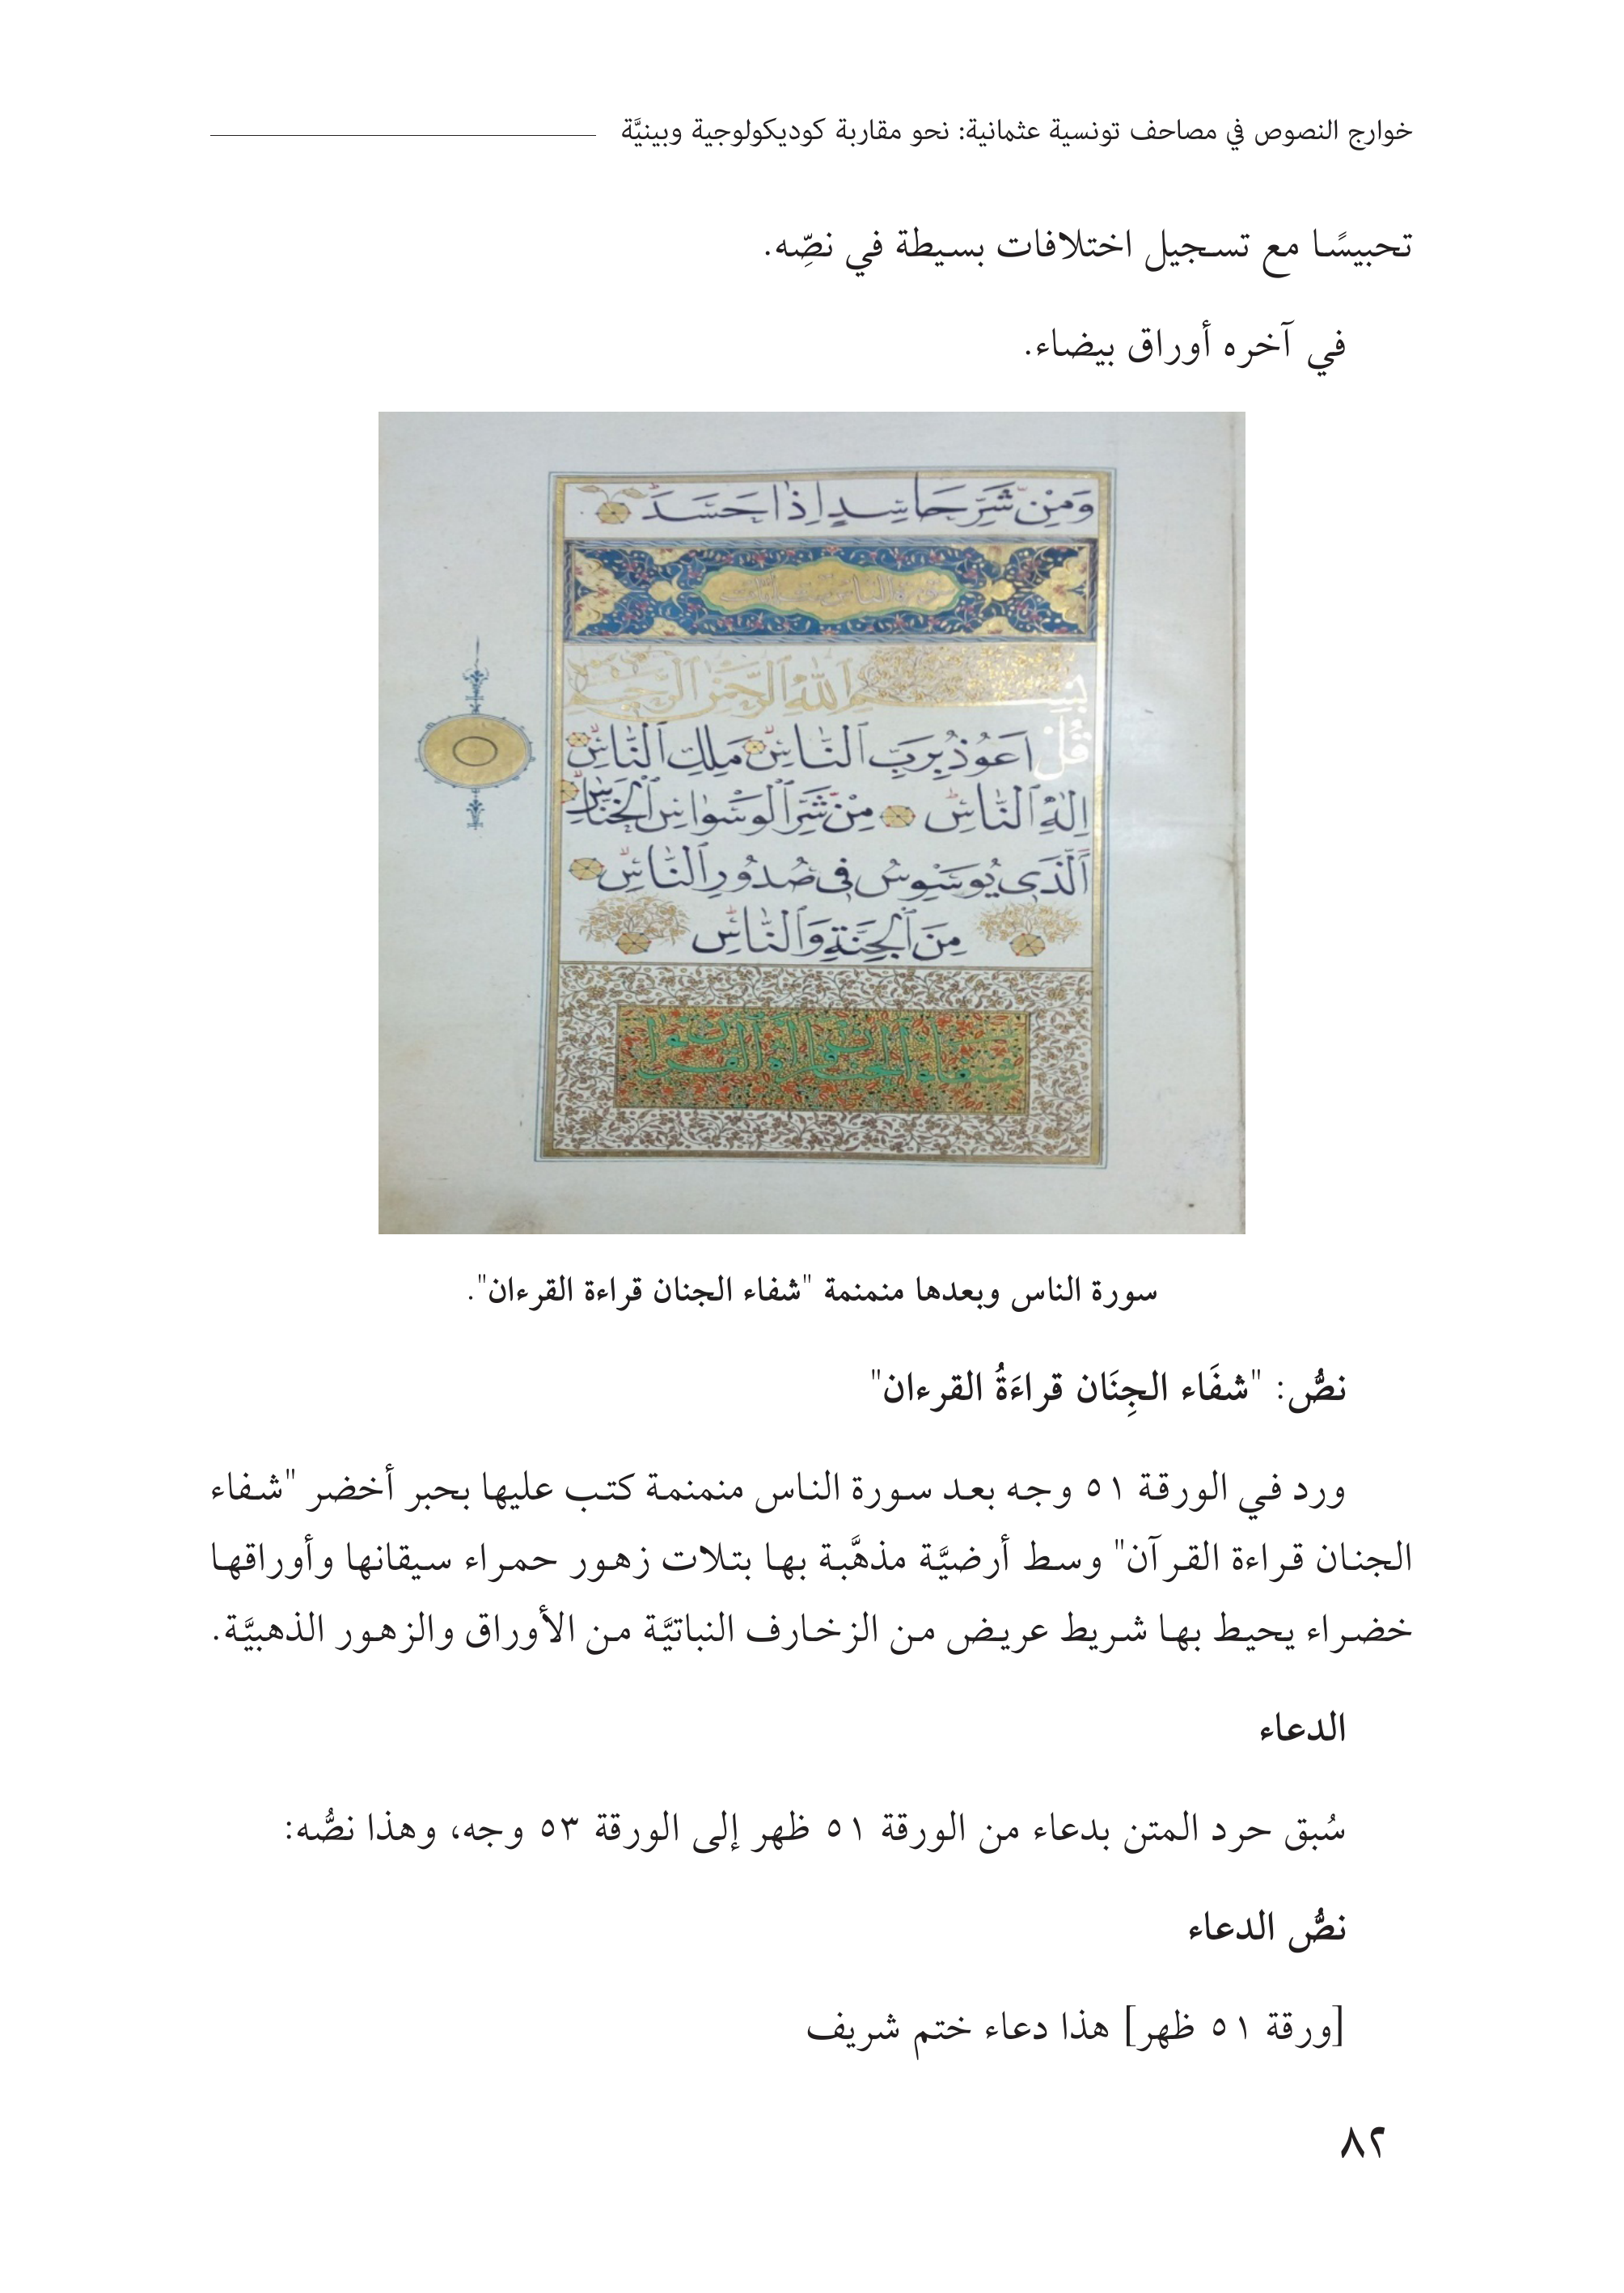 خوارج النصوص في مصاحف تونسية عثمانية: نحو مقاربة كوديكولوجية وبينيَّة
تحبيسًا مع تسجيل اختلافات بسيطة في نصِّه.
في آخره أوراق بيضاء.
وَمِنْ شَرِّ حَاسِدٍ اِذَا حَسَدَ
سورة الناس
بِسْمِ اللّٰهِ الرَّحْمٰنِ الرَّحِيمِ
قُلْ اَعُوذُ بِرَبِّ النَّاسِ مَلِكِ النَّاسِ
اِلٰهِ النَّاسِ مِنْ شَرِّ الْوَسْوَاسِ الْخَنَّاسِ
اَلَّذِى يُوَسْوِسُ فِى صُدُورِ النَّاسِ
مِنَ الْجِنَّةِ وَالنَّاسِ
شفاء الجنان قراءة القرءان
سورة الناس وبعدها منمنمة "شفاء الجنان قراءة القرءان".
نصُّ: "شفَاء الجِنَان قراءَةُ القرءان"
ورد في الورقة ٥١ وجه بعد سورة الناس منمنمة كتب عليها بحبر أخضر "شفاء
الجنان قراءة القرآن" وسط أرضيَّة مذهَّبة بها بتلات زهور حمراء سيقانها وأوراقها
خضراء يحيط بها شريط عريض من الزخارف النباتيَّة من الأوراق والزهور الذهبيَّة.
الدعاء
سُبق حرد المتن بدعاء من الورقة ٥١ ظهر إلى الورقة ٥٣ وجه، وهذا نصُّه:
نصُّ الدعاء
[ورقة ٥١ ظهر] هذا دعاء ختم شريف
٨٢